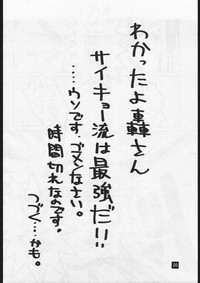 わかったよ轟さん
サイキョー流は最強だ!!
……ウソです。ゴメンなさい。
時間切れなのです。
つづく…かも。